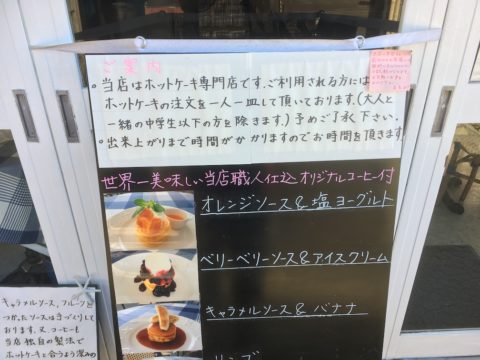 ご案内
。当店はホットケーキ専門店です。ご利用される方には
ホットケーキの注文を一人一皿して頂いております。(大人と
一緒の中学生以下の方を除きます。)予めご了承下さい。
。出来上がりまで時間がかかりますのでお時間を頂きます。
世界一美味しい当店職人仕込オリジナルコーヒー付
オレンジソース&塩ヨーグルト
ベリーベリーソース&アイスクリーム
キャラメルソース & バナナ
キャラメルソース,フルーツを
つかったソースは手づくりして
おります。又、コーヒーも
当店独自の製法で
ホットケーキと合うよう深みの